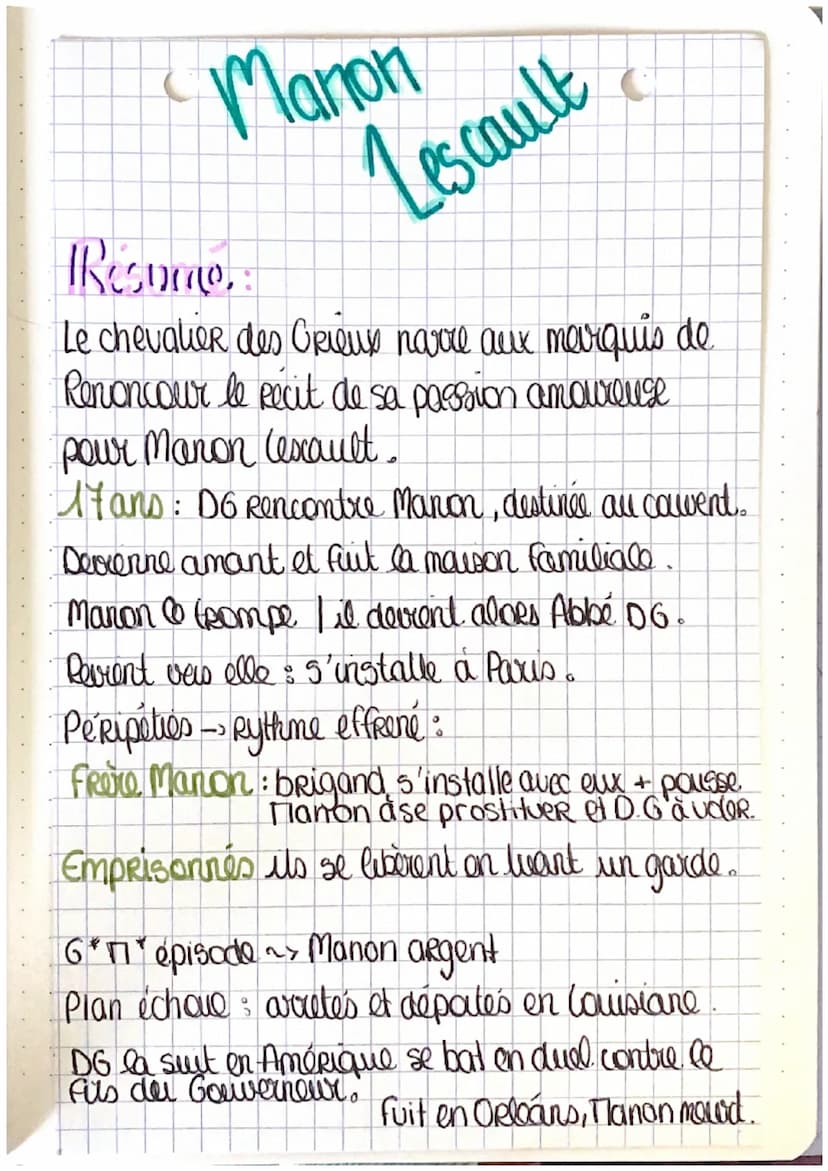 Manon
Lescault
Résumé :
Le chevalier des Grieux narre aux marquis de
Renoncour le récit de sa passion amoureuse
pour Manon Lescault.
17 ans : DG rencontre Manon, destinée au couvent.
Devienne amant et fuit la maison familiale.
Manon le trompe / il devient alors Abbé DG.
Revient vers elle : s'installe à Paris.
Péripéties → rythme effrené :
Frère Manon : brigand s'installe avec eux + pousse
Manon à se prostituer et D.G à voler.
Emprisonnés ils se libèrent en tuant un garde.
G*M* épisode ~> Manon argent
Plan échoue : arretés et déportés en Louisiane.
DG la suit en Amérique se bat en duel contre le
fils du Gouverneur.
Fuit en Orléans, Manon meurt.